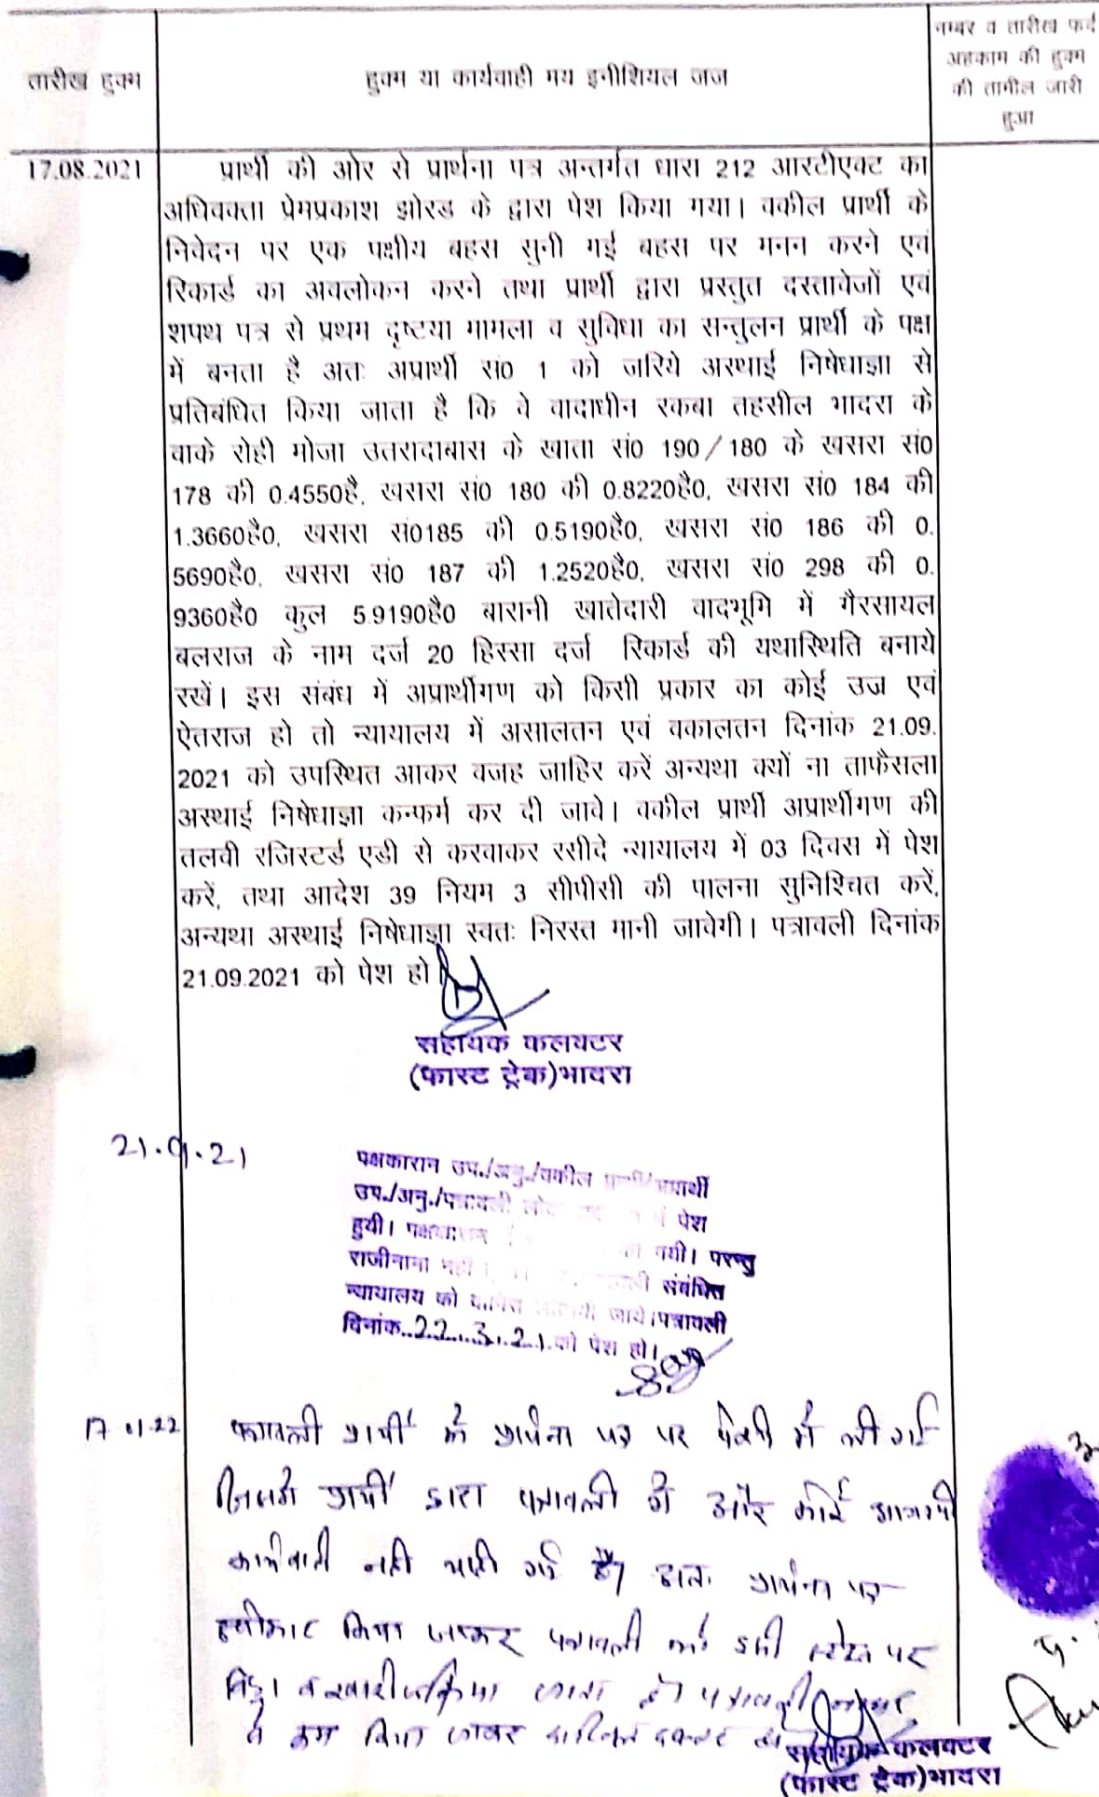 तारीख हुक्म
हुक्म या कार्यवाही मय इनीशियल जज
नम्बर व तारीख फर्द
अहकाम की हुक्म
की तामील जारी
हुआ
17.08.2021
प्रार्थी की ओर से प्रार्थना पत्र अन्तर्गत धारा 212 आरटीएक्ट का
अधिवक्ता प्रेमप्रकाश झोरड के द्वारा पेश किया गया। वकील प्रार्थी के
निवेदन पर एक पक्षीय बहस सुनी गई बहस पर मनन करने एवं
रिकार्ड का अवलोकन करने तथा प्रार्थी द्वारा प्रस्तुत दस्तावेजों एवं
शपथ पत्र से प्रथम दृष्टया मामला व सुविधा का सन्तुलन प्रार्थी के पक्ष
में बनता है अतः अप्रार्थी सं0 1 को जरिये अस्थाई निषेधाज्ञा से
प्रतिबंधित किया जाता है कि वे वादाधीन रकबा तहसील भादरा के
वाके रोही मोजा उतरादाबास के खाता सं0 190/180 के खसरा सं0
178 की 0.4550है, खसरा सं0 180 की 0.8220है0, खसरा सं0 184 की
1.3660है0, खसरा सं0185 की 0.5190है0, खसरा सं0 186 की 0.
5690है0, खसरा सं0 187 की 1.2520है0, खसरा सं0 298 की 0.
9360है0 कुल 5.9190है0 बारानी खातेदारी वादभूमि में गैरसायल
बलराज के नाम दर्ज 20 हिस्सा दर्ज रिकार्ड की यथास्थिति बनाये
रखें। इस संबंध में अप्रार्थीगण को किसी प्रकार का कोई उज्र एवं
ऐतराज हो तो न्यायालय में असालतन एवं वकालतन दिनांक 21.09.
2021 को उपस्थित आकर वजह जाहिर करें अन्यथा क्यों ना ताफैसला
अस्थाई निषेधाज्ञा कन्फर्म कर दी जावे। वकील प्रार्थी अप्रार्थीगण की
तलवी रजिस्टर्ड एडी से करवाकर रसीदे न्यायालय में 03 दिवस में पेश
करें, तथा आदेश 39 नियम 3 सीपीसी की पालना सुनिश्चित करें,
अन्यथा अस्थाई निषेधाज्ञा स्वतः निरस्त मानी जावेगी। पत्रावली दिनांक
21.09.2021 को पेश हो।
सहायक कलक्टर
(फास्ट ट्रेक)भादरा
21.9.21
पक्षकारान उप./अनु./वकील प्रार्थी/अप्रार्थी
उप./अनु./पत्रावली लोक पेश
हुयी। पक्षकारान गयी। परन्तु
राजीनामा नहीं संबंधित
न्यायालय को जाये।पत्रावली
दिनांक..22.3.21.को पेश हो।
17.01.22
पत्रावली प्रार्थी के प्रार्थना पत्र पर पेशी में ली गई
प्रार्थी द्वारा पत्रावली में और कोई
कार्यवाही नहीं चाही गई है। अतः प्रार्थना पत्र
स्वीकार किया जाकर पत्रावली को इसी स्टेज पर
किया जाता है।
से कम किया जाकर दाखिल दफ्तर
सहायक कलक्टर
(फास्ट ट्रेक)भादरा